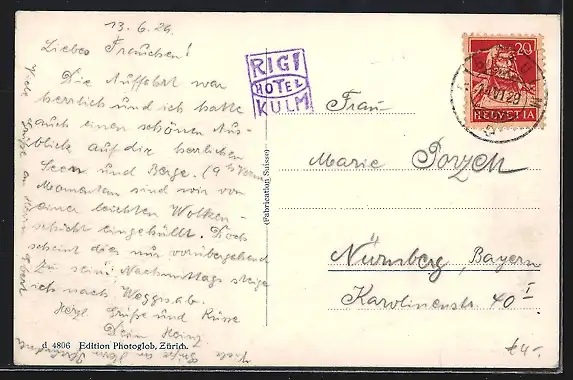 13. 6. 26
Liebes Frauchen!
Die Auffahrt war
herrlich und ich hatte
auch einen schönen Aus-
blicke auf die herrlichen
Seen und Berge. (9
Momentan sind wir von
einer leichten Wolken-
schicht eingehüllt. Doch
scheint dies nur vorübergehend
zu sein. Nachmittags steige
ich nach Weggis ab.
Herzl. Grüße und Küsse
Dein Heinz
Viele Grüße an
RIGI
HOTEL
KULM
20
HELVETIA
Frau
Marie Porzelt
Nürnberg, Bayern
Karolinenstr. 40 I
(Fabrication Suisse)
d 4806 Edition Photoglob, Zürich.
€4,-